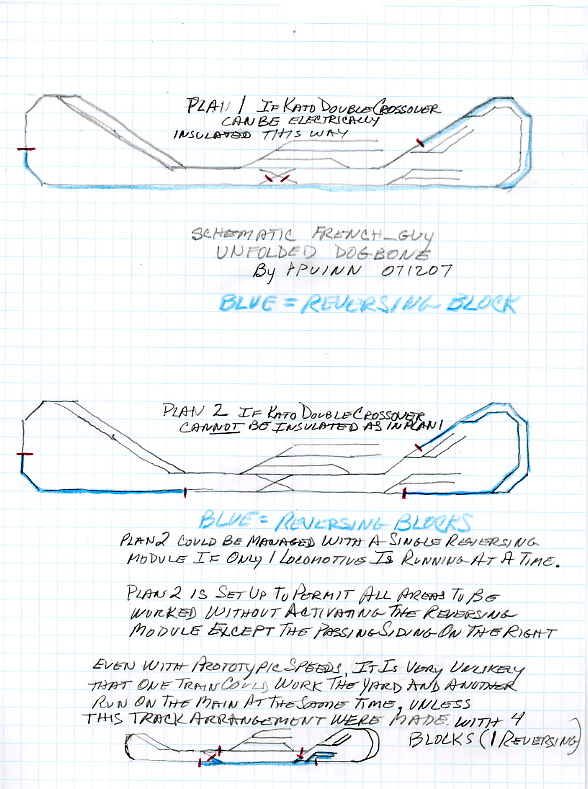 PLAN 1 IF KATO DOUBLE CROSSOVER
CAN BE ELECTRICALLY
INSULATED THIS WAY
SCHEMATIC FRENCH_GUY
UNFOLDED DOGBONE
By PPUINN 071207
BLUE = REVERSING BLOCK
PLAN 2 IF KATO DOUBLE CROSSOVER
CANNOT BE INSULATED AS IN PLAN 1
BLUE = REVERSING BLOCKS
PLAN 2 COULD BE MANAGED WITH A SINGLE REVERSING
MODULE IF ONLY 1 LOCOMOTIVE IS RUNNING AT A TIME.
PLAN 2 IS SET UP TO PERMIT ALL AREAS TO BE
WORKED WITHOUT ACTIVATING THE REVERSING
MODULE EXCEPT THE PASSING SIDING ON THE RIGHT
EVEN WITH PROTOTYPIC SPEEDS, IT IS VERY UNLIKELY
THAT ONE TRAIN COULD WORK THE YARD AND ANOTHER
RUN ON THE MAIN AT THE SAME TIME, UNLESS
THIS TRACK ARRANGEMENT WERE MADE WITH 4
BLOCKS (1 REVERSING)